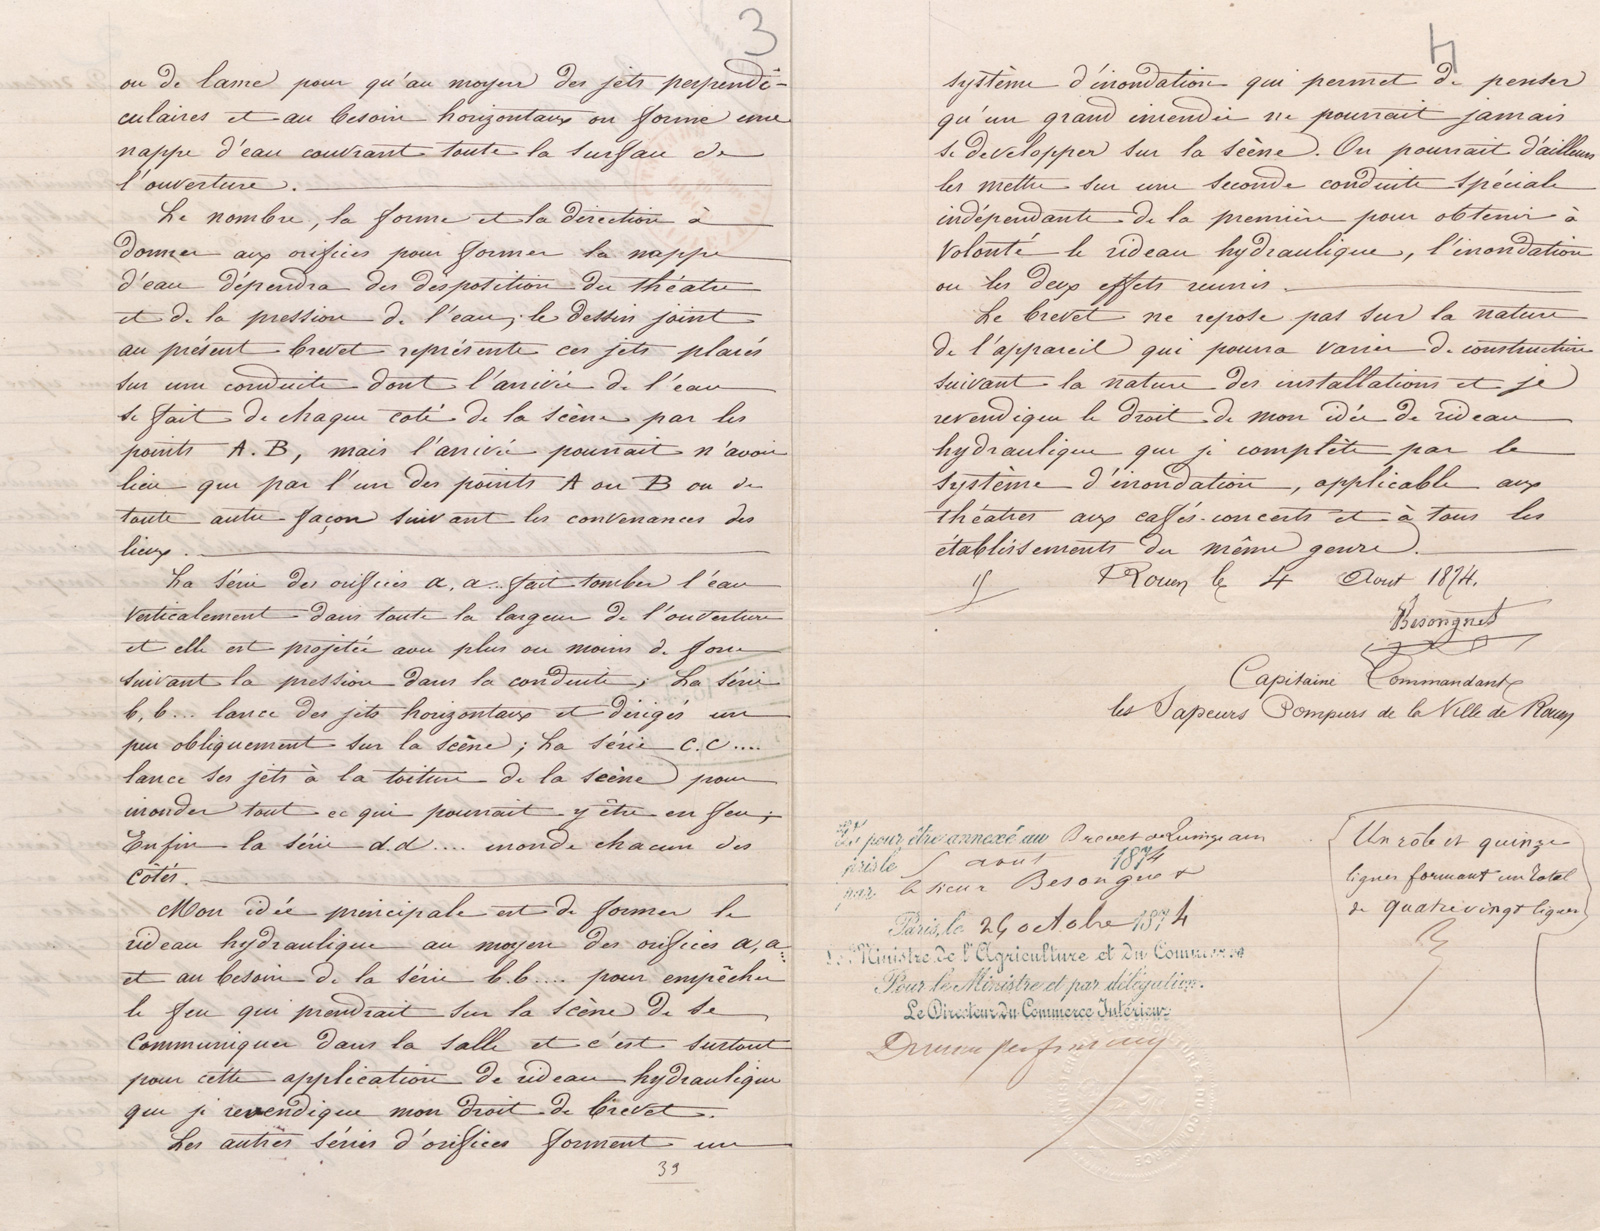 3
ou de lame pour qu'au moyen des jets perpendi-
culaires et au besoin horizontaux on forme une
nappe d'eau couvrant toute la surface de
l'ouverture.
Le nombre, la forme et la direction à
donner aux orifices pour former la nappe
d'eau dépendra des desposition du théatre
et de la pression de l'eau; le dessin joint
au présent brevet représente ces jets placés
sur une conduite dont l'arrivée de l'eau
se fait de chaque coté de la scène par les
points A.B, mais l'arrivée pourrait n'avoir
lieu que par l'un des points A ou B ou de
toute autre façon suivant les convenances des
lieux.
La série des orifices a, a... fait tomber l'eau
verticalement dans toute la largeur de l'ouverture
et elle est projetée avec plus ou moins de force
suivant la pression dans la conduite; La série
b, b... lance des jets horizontaux et dirigés un
peu obliquement sur la scène; La série c.c....
lance ses jets à la toiture de la scène pour
inonder tout ce qui pourrait y être en feu;
Enfin la série d.d.... inonde chacun des
côtés.
Mon idée principale est de former le
rideau hydraulique au moyen des orifices a, a
et au besoin de la série b.b.... pour empêcher
le feu qui prendrait sur la scène de se
communiquer dans la salle et c'est surtout
pour cette application de rideau hydraulique
que je revendique mon droit de brevet.
Les autres séries d'orifices forment un
39
4
système d'inondation qui permet de penser
qu'un grand incendie ne pourrait jamais
se developper sur la scène. On pourrait d'ailleurs
les mettre sur une seconde conduite spéciale
indépendante de la première pour obtenir à
volonté le rideau hydraulique, l'inondation
ou les deux effets reunis.
Le brevet ne repose pas sur la nature
de l'appareil qui pourra varier de construction
suivant la nature des installations et je
revendique le droit de mon idée de rideau
hydraulique que je complète par le
système d'inondation, applicable aux
théatres aux cafés-concerts et à tous les
établissements du même genre.
Rouen le 4 Aout 1874.
Besongnet
Capitaine Commandant
les Sapeurs Pompiers de la Ville de Rouen
Vu pour être annexé au Brevet de Quinze ans
pris le 5 aout 1874
par le sieur Besongnet
Paris, le 29 octobre 1874
Le Ministre de l'Agriculture et du Commerce
Pour le Ministre et par délégation.
Le Directeur du Commerce Intérieur
Un rôle et quinze
lignes formant un total
de quatre vingt lignes